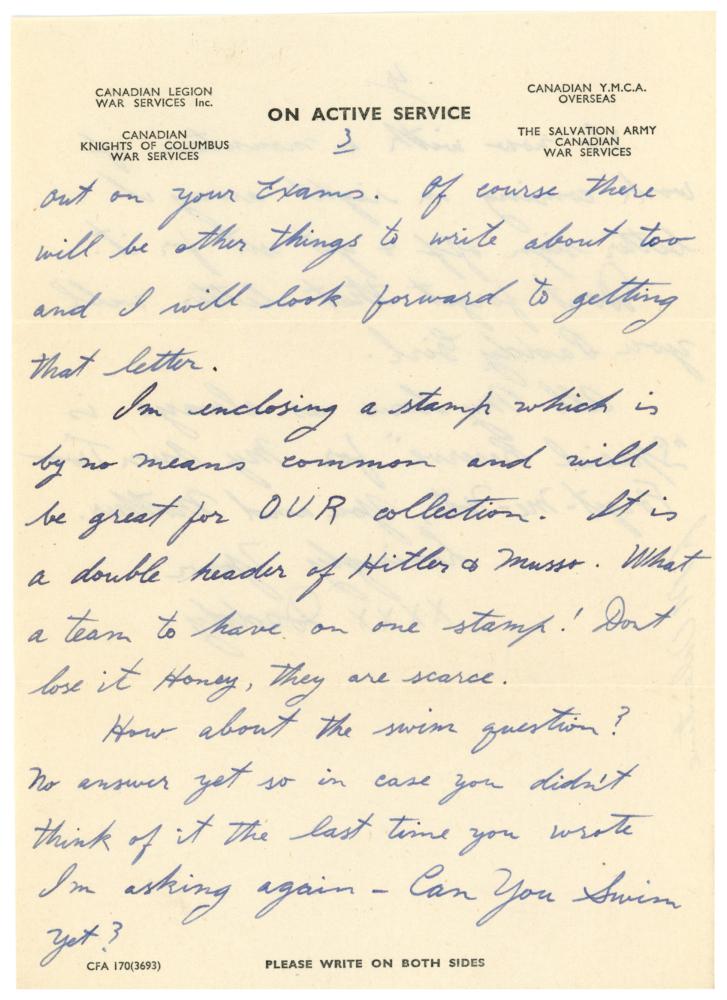 CANADIAN LEGION
WAR SERVICES Inc.
CANADIAN
KNIGHTS OF COLUMBUS
WAR SERVICES
ON ACTIVE SERVICE
CANADIAN Y.M.C.A.
OVERSEAS
THE SALVATION ARMY
CANADIAN
WAR SERVICES
3
out on your Exams. Of course there
will be other things to write about too
and I will look forward to getting
that letter.
Im enclosing a stamp which is
by no means common and will
be great for OUR collection. It is
a double header of Hitler & Musso. What
a team to have on one stamp! Dont
lose it Honey, they are scarce.
How about the swim question?
No answer yet so in case you didn't
think of it the last time you wrote
Im asking again – Can You Swim
yet?
CFA 170(3693)
PLEASE WRITE ON BOTH SIDES